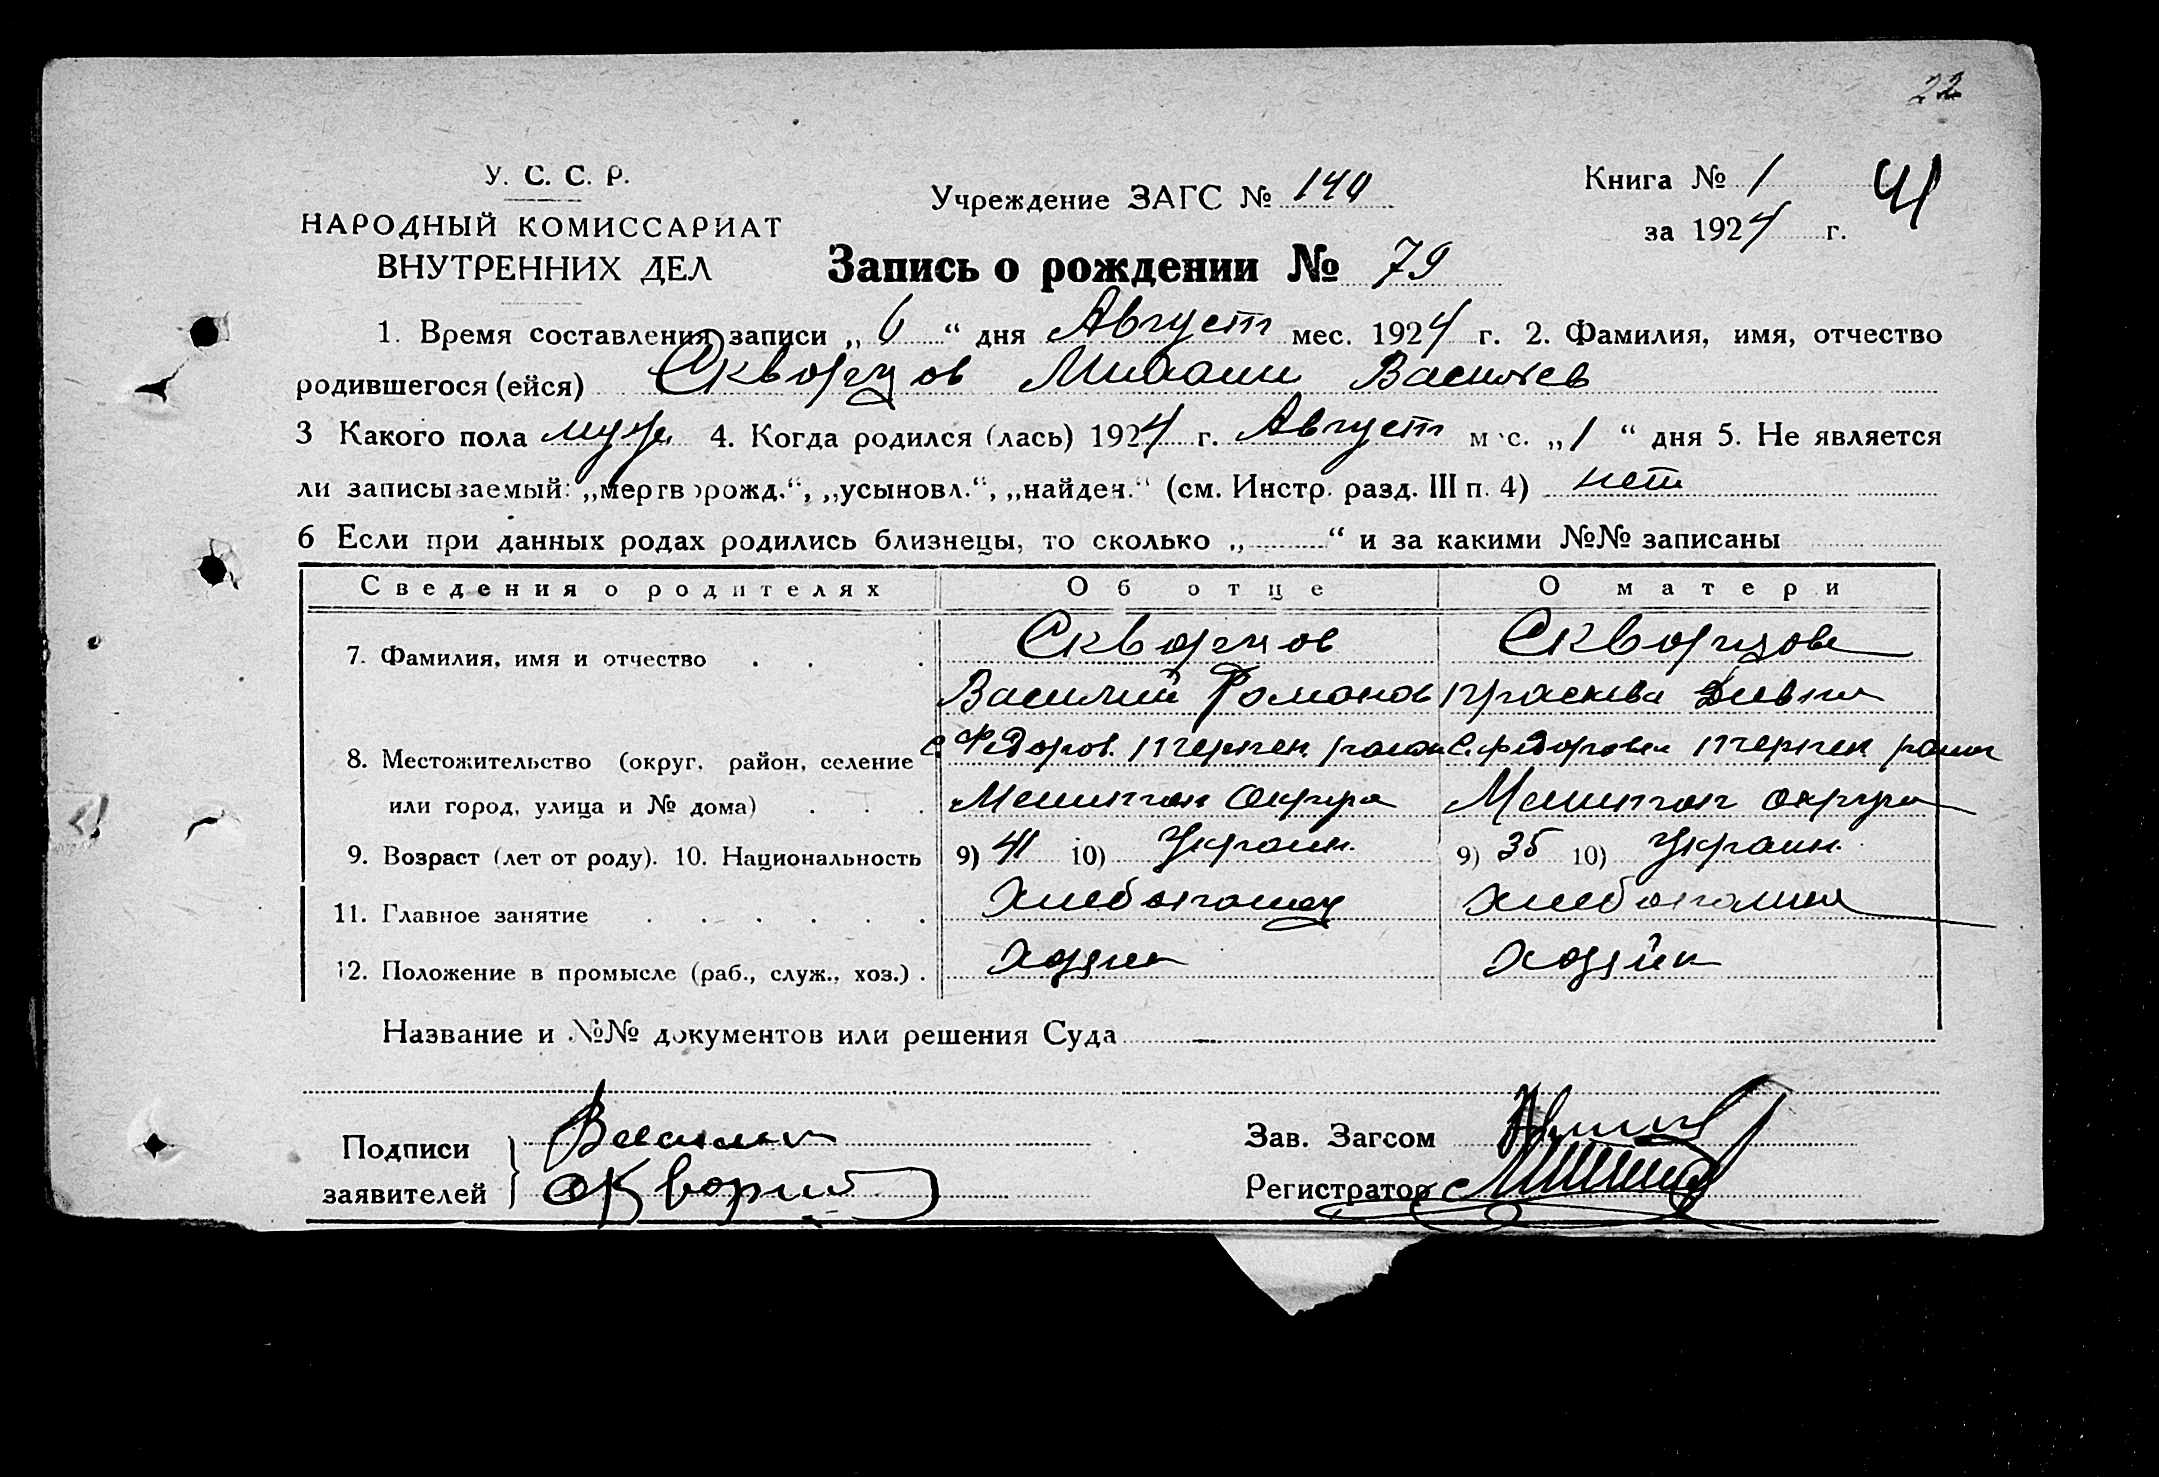 22
У. С. С. Р.
НАРОДНЫЙ КОМИССАРИАТ
ВНУТРЕННИХ ДЕЛ
Учреждение ЗАГС № 140
Книга № 1 41
за 1924 г.
Запись о рождении № 79
1. Время составления записи „ 6 “ дня Август мес. 1924 г. 2. Фамилия, имя, отчество
родившегося (ейся) Скворцов Василев
3 Какого пола муж. 4. Когда родился (лась) 1924 г. Август мес. „ 1 “ дня 5. Не является
ли записываемый: „мертворожд.“, „усыновл.“, „найден.“ (см. Инстр. разд. III п. 4) нет
6 Если при данных родах родились близнецы, то сколько „ “ и за какими №№ записаны
Сведения о родителях Об отце О матери
7. Фамилия, имя и отчество Скворцов Скворцова
Василий Романов Праскева
8. Местожительство (округ, район, селение с Федоров. район с. Федоровка район
или город, улица и № дома) Мелитоп округа Мелитоп округа
9. Возраст (лет от роду). 10. Национальность 9) 41 10) Украин. 9) 35 10) Украин.
11. Главное занятие Хлебопашец
12. Положение в промысле (раб., служ., хоз.) Хозяин Хозяйк
Название и №№ документов или решения Суда
Подписи заявителей Василий
Скворцов
Зав. Загсом
Регистратор